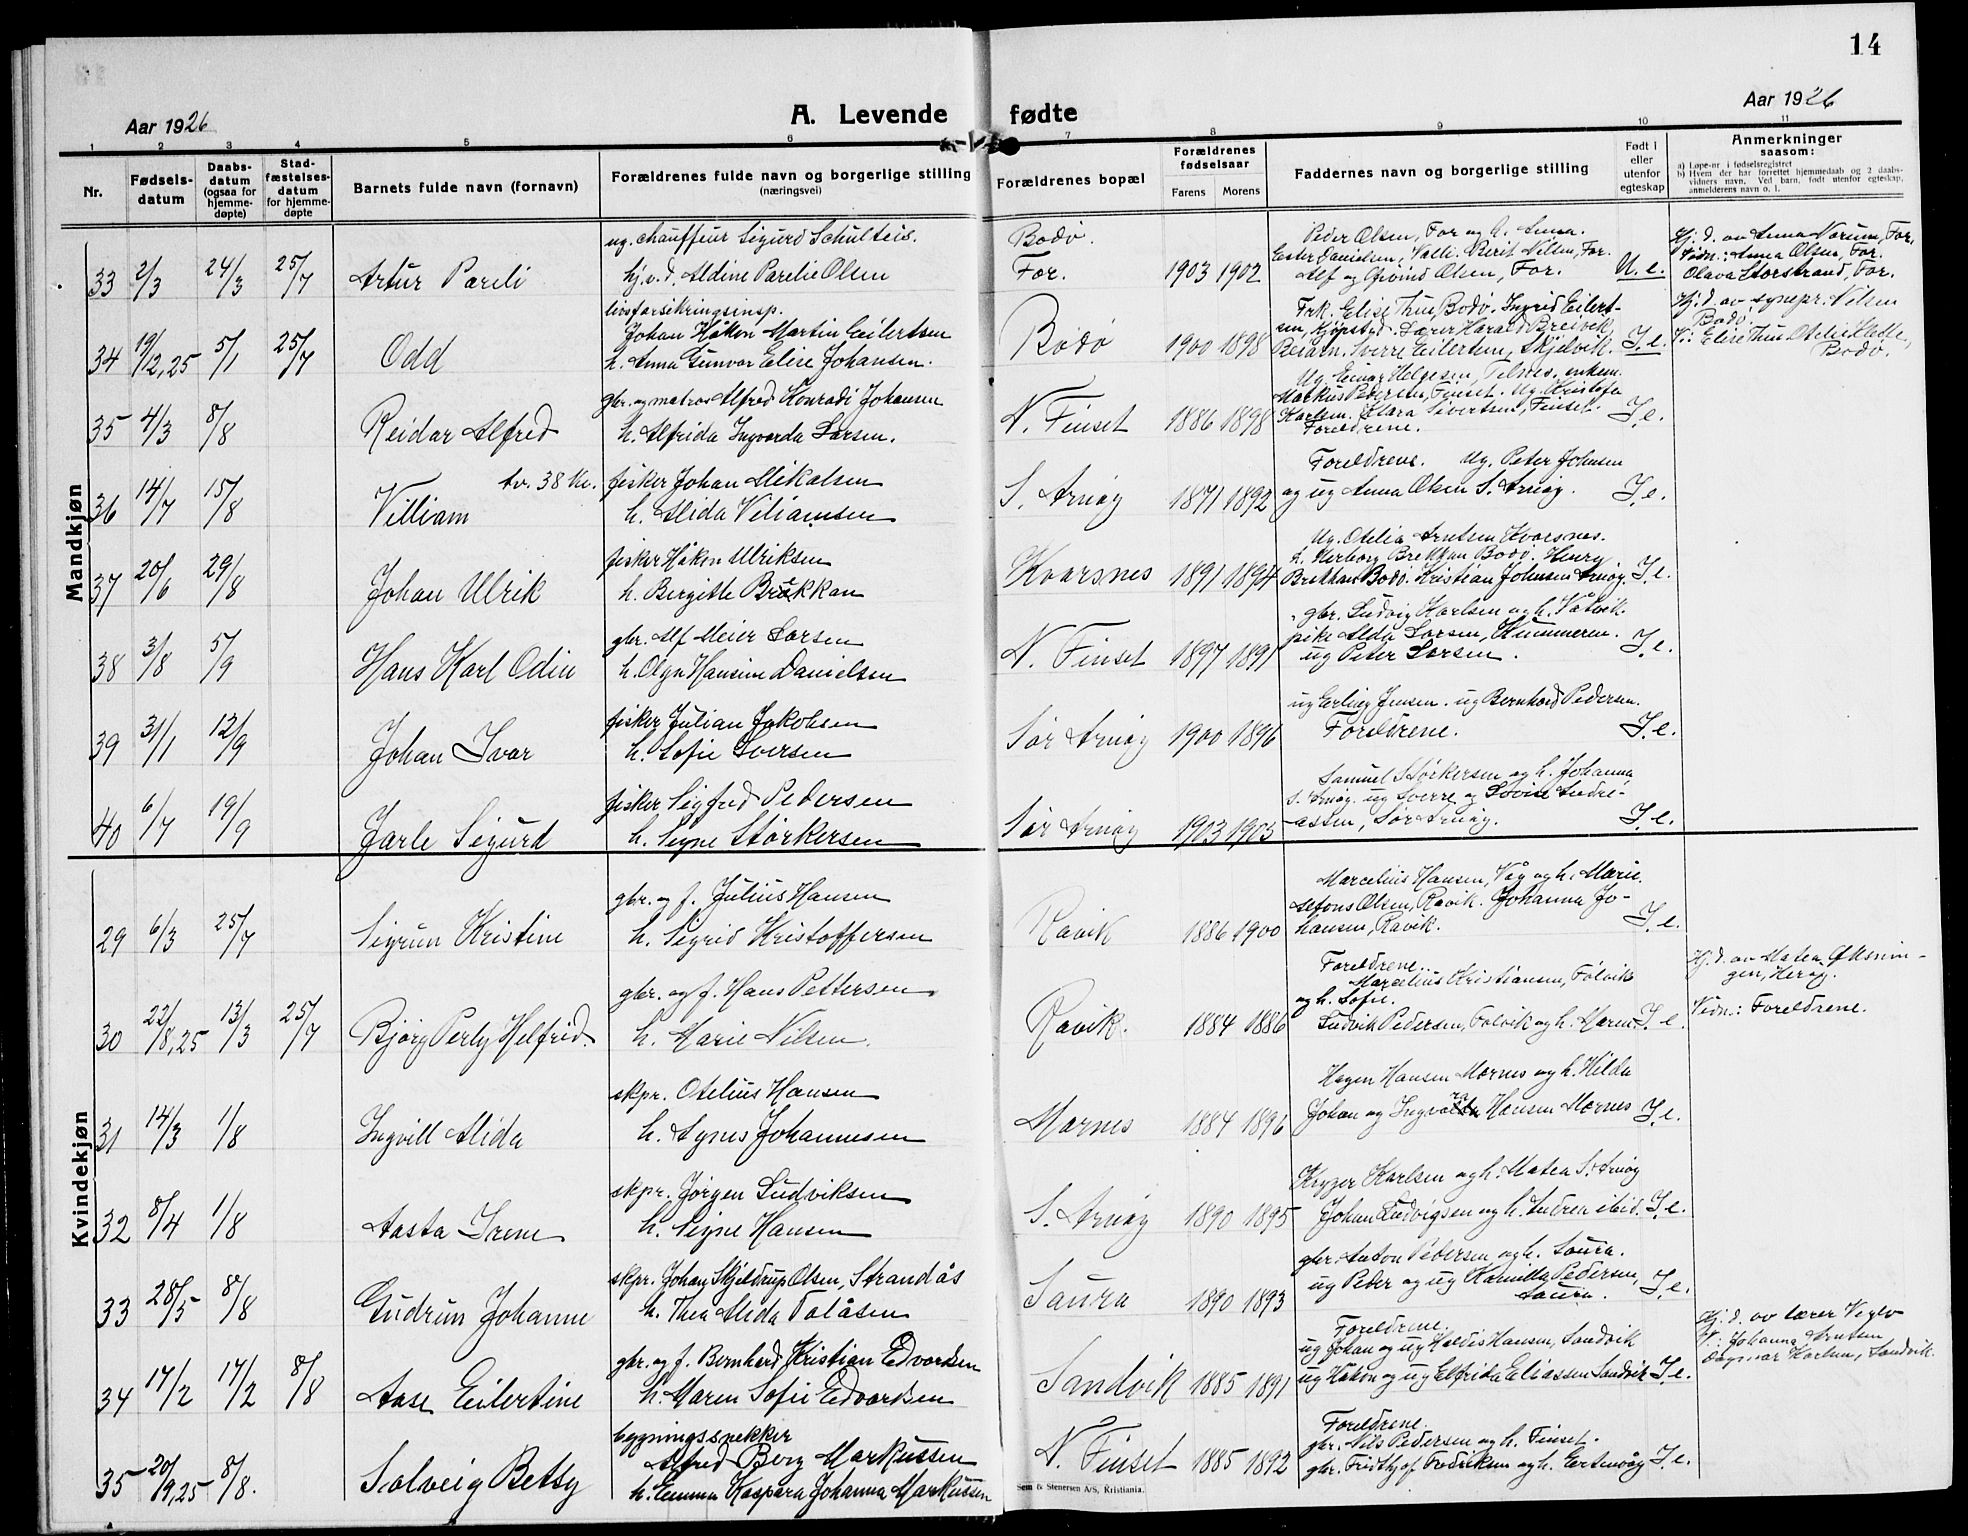 14
Aar 1926
A. Levende fødte
Aar 1926
1 2 3 4 5 6 7 8 9 10 11
Nr.
Fødsels-
datum
Daabs-
datum
(ogsaa for
hjemme-
døpte)
Stad-
fæstelses-
datum
for hjemme-
døpte
Barnets fulde navn (fornavn)
Forældrenes fulde navn og borgerlige stilling
(næringsvei)
Forældrenes bopæl
Forældrenes
fødselsaar
Farens Morens
Faddernes navn og borgerlige stilling
Født i
eller
utenfor
egteskap
Anmerkninger
saasom:
a) Løpe-nr. i fødselsregistret
b) Hvem der har forrettet hjemmedaab og 2 daabs-
vidners navn. Ved barn, født utenfor egteskap,
anmelderens navn o. l.
Mandkjøn
33 2/3 24/3 25/7 Artur Pareli
ug. chauffeur Sigurd Schulteis.
hj.v.d. Aldine Parelie Olsen
Bodø.
For.
1903 1902
Peder Olsen, For og h. Anna.
Ester Danielsen, Valli. Berit Nilsen, For.
Alf og Øivind Olsen, For.
U. e.
Hj. d. av Anna Norum, For.
Vidn.: Anna Olsen, For.
Olava Storstrand, For.
34 19/12,25 5/1 25/7 Odd
livsforsikringsinsp.
Johan Håkon Martin Eilertsen
h. Anna Gunvor Elise Johansen.
Bodø 1900 1898
Frk. Elise Thue, Bodø. Ingrid Eilert-
sen, Kjøpstad. Lærer Harald Breivik,
Sverre Eilertsen, Skjelvik. I. e.
Hj. d. av synepr. Nilsen
Bodø
V.: Elise Thue
Bodø.
35 4/3 8/8 Reidar Alfred
gbr. og matros Alfred Konradi Johansen
h. Alfrida Ingvarda Larsen.
N. Finset 1886 1898
Ug. Einar Helgesen, enkem.
Markus Pedersen, Finset. Ug. Kristofa
Karlsen. Klara Sivertsen, Finset.
Foreldrene.
I. e.
36 14/7 15/8 Villiam
tv. 38 kv.
fisker Johan Mikalsen
h. Alida Viliamsen
S. Arnøy 1871 1892
Foreldrene. Ug. Peter Johnsen
og ug Anna Olsen S. Arnøy. I. e.
37 20/6 29/8 Johan Ulrik
fisker Håkon Ulriksen
h. Bergitte Brekkan
Kvarsnes 1891 1894
Ug. Otelia Arntsen Kvarsnes.
h. Herborg Brekkan Bodø. Henry
Brekkan Bodø. Kristian Johnsen Arnøy I. e.
38 3/8 5/9 Hans Karl Odin
gbr. Alf Meier Larsen
h. Olga Hansine Danielsen
N. Finset 1897 1891
gbr. Ludvig Karlsen og h. Våtvik.
pike Alda Larsen,
ug Peter Larsen.
I. e.
39 31/1 12/9 Johan Ivar
fisker Julian Jakobsen
h. Sofie Iversen
Sør Arnøy 1900 1896
ug Erling Jensen. ug Bernhard Pedersen.
Foreldrene.
I. e.
40 6/7 19/9 Jarle Sigurd
fisker Sigfred Pedersen
h. Signe Størkersen
Sør Arnøy 1903 1905
Samuel Størkersen og h. Johanna,
S. Arnøy. ug Sverre og Lovise Andre-
assen, Sør Arnøy.
I. e.
Kvindekjøn
29 6/3 25/7 Sigrun Kristine
gbr. og f. Julius Hansen
h. Sigrid Kristoffersen
Ravik 1886 1900
Marcelius Hansen, Våg og h. Marie.
Alfons Olsen, Ravik. Johanna Jo-
hansen, Ravik.
I. e.
30 22/8,25 13/3 25/7 Bjørg Perly Helfrid.
gbr. og f. Hans Pettersen
h. Marie Nilsen.
Ravik. 1884 1886
Foreldrene.
Marcelius Kristiansen, Følvik
og h. Sofie.
Ludvik Pedersen, Følvik og h. Maren. I. e.
Hj. d. av Matea
Vidn.: Foreldrene.
31 14/3 1/8 Ingvill Alida
skpr. Otelius Hansen
h. Agnes Johannesen
Mornes 1884 1896
Hagen Hansen Mornes og h. Hilda
Johan og Ingvara Hansen Mornes I. e.
32 8/4 1/8 Aasta Irene
skpr. Jørgen Ludviksen
h. Signe Hansen
S. Arnøy 1890 1895
Kryger Karlsen og h. Matea S. Arnøy
Johan Ludvigsen og h. Andrea ibid. I. e.
33 28/5 8/8 Gudrun Johanne
skpr. Johan Skjeldrup Olsen, Strandås
h. Thea Alida Talåsen
Saura 1890 1893
gbr. Anton Pedersen og h. Saura.
ug Peder og ug Kamilla Pedersen,
Saura.
I. e.
34 17/2 17/2 8/8 Aase Eilertine
gbr. og f. Bernhard Kristian Edvardsen
h. Maren Sofie Edvardsen
Sandvik 1885 1891
Foreldrene.
ug Johan og ug Haldis Hansen, Sandvik
ug Håkon og ug Elfrida Eliassen Sandvik I. e.
Hj. d. av lærer
V.: Johanna Arntsen
Dagmar Karlsen, Sandvik.
35 20/9,25 8/8. Solveig Betsy
bygningssnekker
Alfred Berg Markussen
h. Emma Kaspara Johanna Markussen
N. Finset 1885 1892
Foreldrene.
gbr. Nils Pedersen og h. Finset.
gbr. Fridthjof Fredriksen og h. I. e.
Sem & Stenersen A/S, Kristiania.